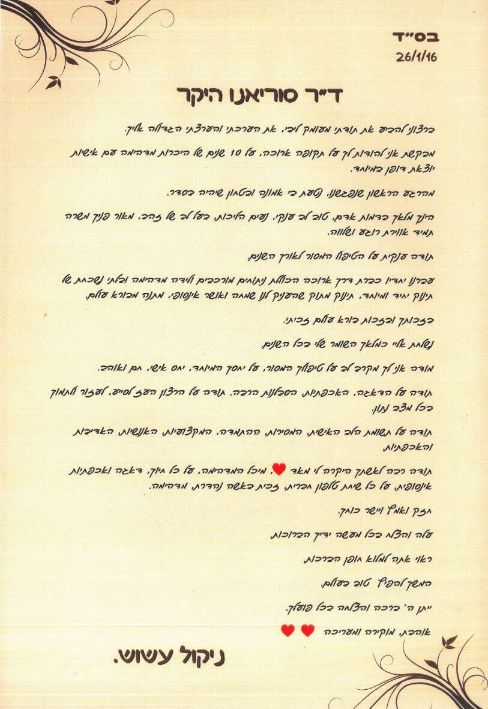 בס״ד
26/1/16
ד״ר סוריאנו היקר
ברצוני להביע את תודתי מעומק ליבי, את הערכתי והערצתי הגדולה אליך.
מבקשת אני להודות לך על תקופה ארוכה, על 10 שנים של היכרות מדהימה עם אישיות
יוצאת דופן במיוחד.
מהרגע הראשון שנפגשנו, נטעת בי אמונה ובטחון שיהיה בסדר.
הינך מלאך בדמות אדם, טוב לב ענקי, נעים הליכות, בעל לב של זהב, מאור פניך משרה
תמיד אווירת רוגע ושלווה.
תודה ענקית על הטיפול המסור לאורך השנים.
עברנו יחדיו כברת דרך ארוכה הכוללת ניתוחים מורכבים ולידה מדהימה ובלתי נשכחת של
תינוק יחיד ומיוחד, תינוק מתוק שהעניק לנו שמחה ואושר אינסופי, מתנה מבורא עולם.
בזכותך ובזכות בורא עולם זכיתי.
נשלחת אליי כמלאך השומר שלי בכל השנים.
מודה אני לך מקרב לב על טיפולך המסור, על יחסך המיוחד, יחס אישי, חם ואוהב.
תודה על הדאגה, האכפתיות, הסבלנות הרבה, תודה על הרצון העז לסייע, לעזור ולתמוך
בכל מצב נתון.
תודה על תשומת הלב האישית, המסירות, ההתמדה, המקצועיות, האנושיות, האדיבות
והאכפתיות.
תודה רבה לאשתך היקרה לי מאד ♥, מיכל המדהימה, על כל חיוך, דאגה ואכפתיות
אינסופית, על כל שיחת טלפון חברית, זכית באשה נהדרת, מדהימה.
חזק ואמץ ויישר כוחך.
עלה והצלח בכל מעשה ידיך הברוכות.
ראוי אתה למלוא חופן הברכות.
המשך להפיץ טוב בעולם.
ייתן ה׳ ברכה והצלחה בכל פועלך.
אוהבת, מוקירה ומעריכה ♥ ♥
ניקול עשוש.